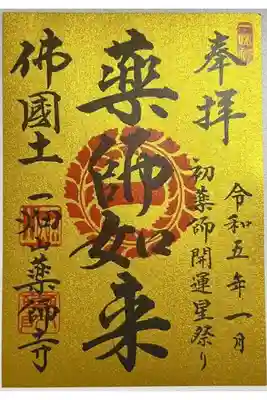 奉拝
令和五年一月
初薬師開運星祭り
薬師如来
佛國土 一畑山薬師寺